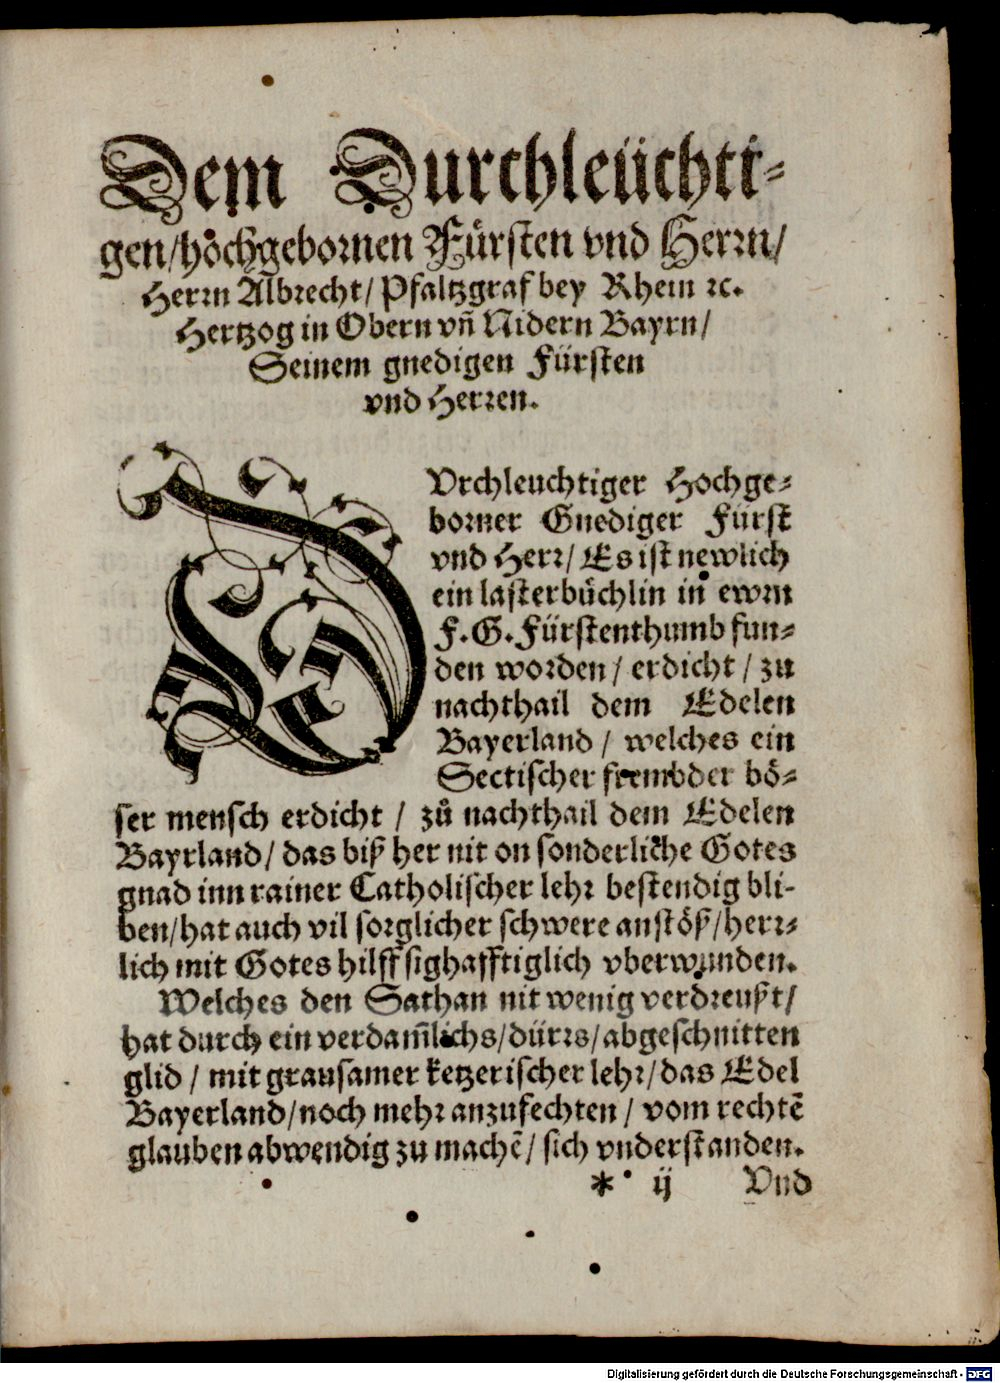 Dem Durchleüchti-
gen/höchgebornen Fürsten vnd Herrn/
Herrn Albrecht/ Pfaltzgraf bey Rhein ꝛc.
Hertzog in Obern vñ Nidern Bayrn/
Seinem gnedigen Fürsten
vnd Herren.
DVrchleuchtiger Hochge-
borner Gnediger Fürst
vnd Herr/ Es ist newlich
ein lasterbüchlin in ewrn
F.G. Fürstenthumb fun-
den worden/ erdicht/ zu
nachthail dem Edelen
Bayerland/ welches ein
Sectischer frembder bö-
ser mensch erdicht/ zů nachthail dem Edelen
Bayrland/ das biß her nit on sonderliche Gotes
gnad inn rainer Catholischer lehr bestendig bli-
ben/hat auch vil sorglicher schwere anstöß/herr-
lich mit Gotes hilff sighafftiglich vberwunden.
Welches den Sathan nit wenig verdreußt/
hat durch ein verdam̃lichs/dürrs/abgeschnitten
glid/ mit grausamer ketzerischer lehr/das Edel
Bayerland/noch mehr anzufechten/ vom rechtẽ
glauben abwendig zu machẽ/ sich vnderstanden.
* ij Vnd
Digitalisierung gefördert durch die Deutsche Forschungsgemeinschaft - DFG